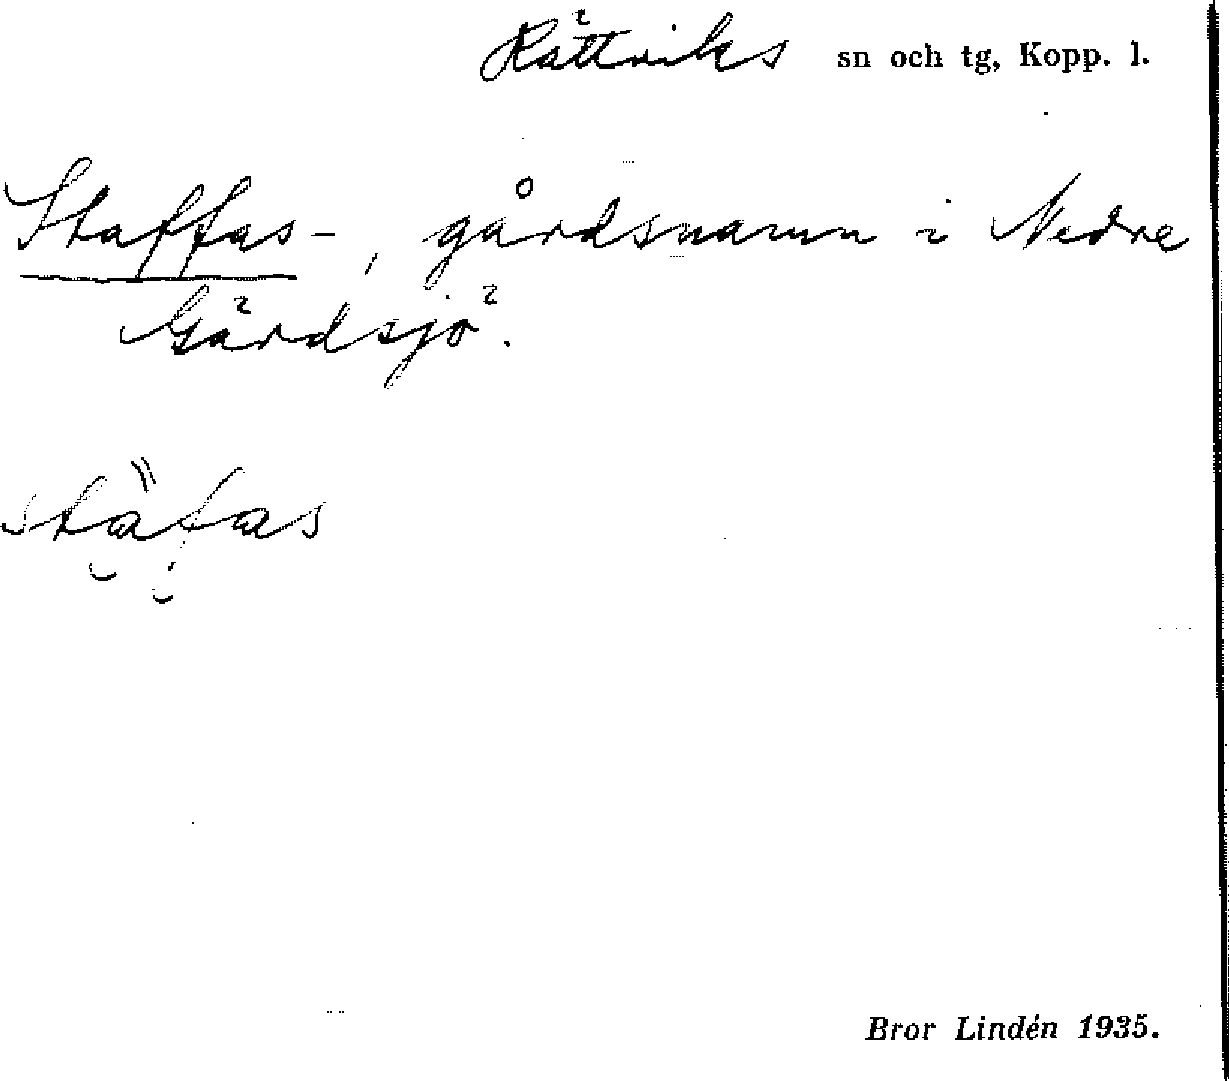 Rättviks sn och tg, Kopp. l.
Staffas-, gårdsnamn i Nedre
Gärdsjö.
stafas
Bror Lindén 1935.